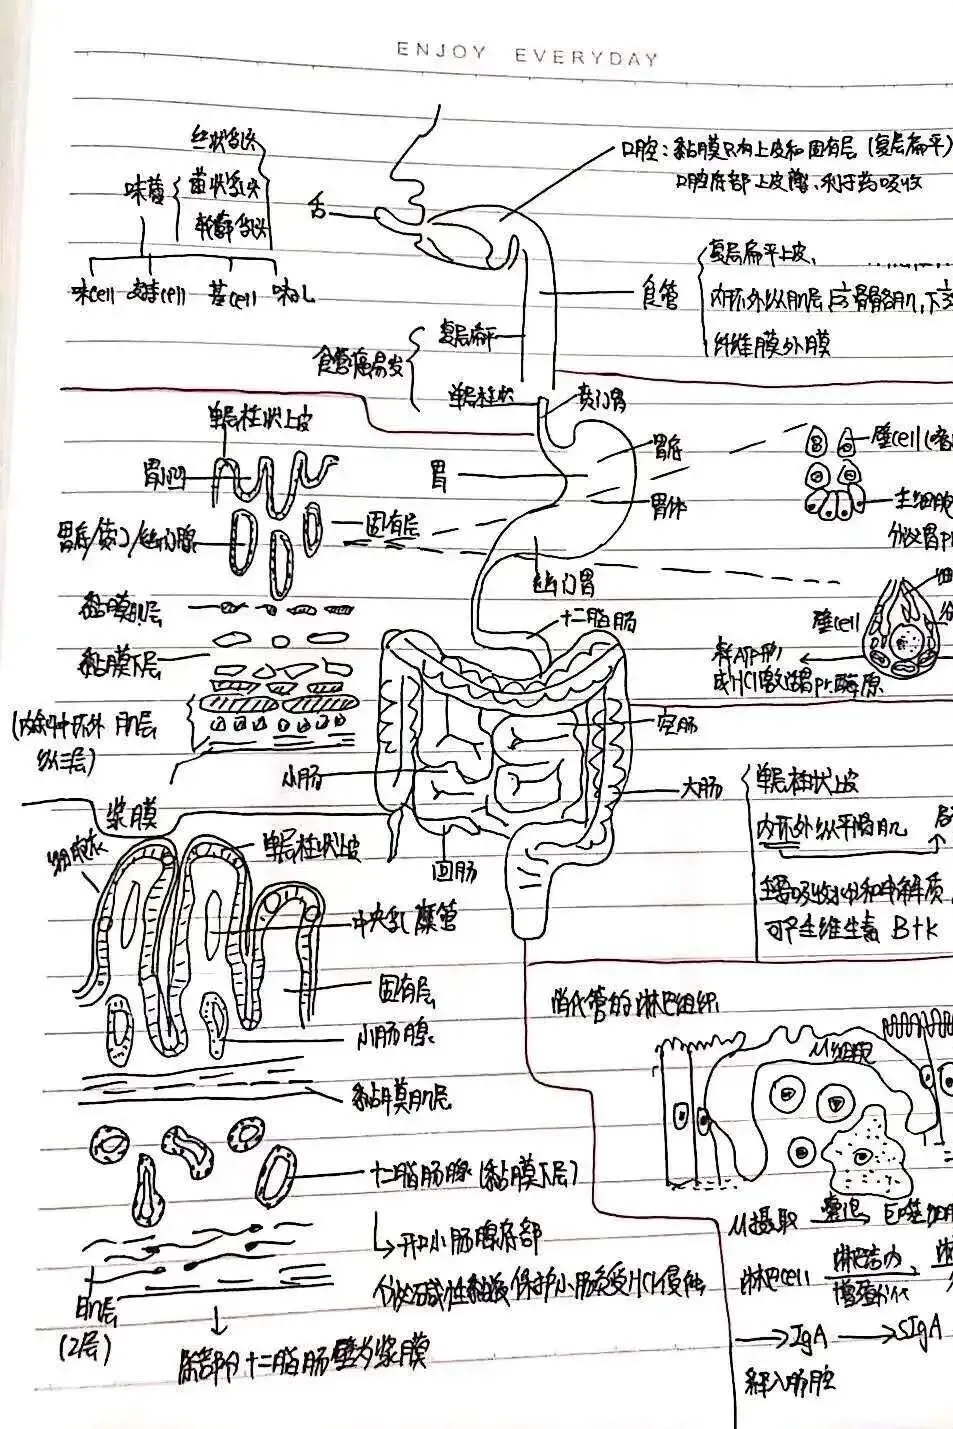 ENJOY EVERYDAY
丝状乳头
味蕾
菌状乳头
轮廓乳头
味cell 支持cell 基cell 味孔
舌
口腔：黏膜只有上皮和固有层（复层扁平）
口腔底部上皮薄、利于药吸收
食管
复层扁平上皮、
内环外纵肌层，上骨骼肌，下
纤维膜外膜
食管癌易发
复层扁平
单层柱状
贲门胃
单层柱状上皮
胃小凹
胃底/贲门/幽门腺
固有层
黏膜肌层
黏膜下层
(内斜中环外
纵三层)
肌层
浆膜
胃
胃底
胃体
幽门胃
十二脂肠
壁cell
主细胞
分泌胃pr
壁cell
释ATP酶
成HCl激活胃pr酶原
空肠
小肠
大肠
回肠
单层柱状上皮
内环外纵平滑肌
主要吸收水份和电解质
可产生维生素 B+K
单层柱状上皮
中央乳糜管
固有层
小肠腺
黏膜肌层
十二脂肠腺(黏膜下层)
↳开口小肠腺底部
分泌碱性黏液保护小肠免受HCl侵蚀
肌层
(2层)
除部分十二脂肠壁为浆膜
消化管的淋巴组织
M细胞
M摄取 囊泡 巨噬
淋巴cell 淋巴结内
增殖分化
→IgA →SIgA
释入肠腔